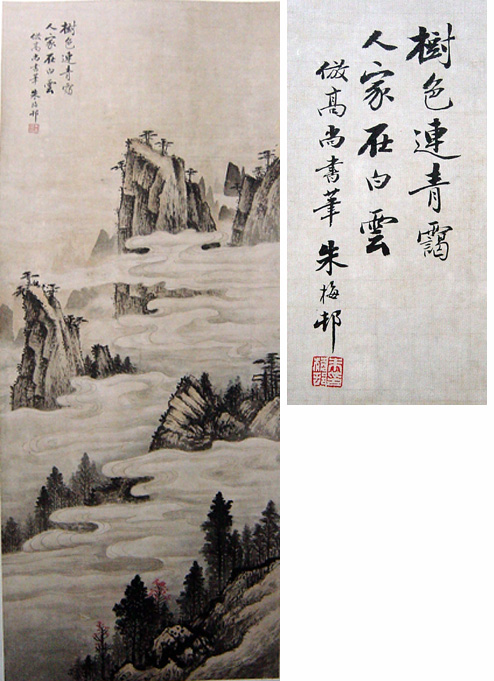 樹色連青靄
人家在白雲
倣高尚書筆 朱梅邨
樹色連青靄
人家在白雲
倣高尚書筆 朱梅邨